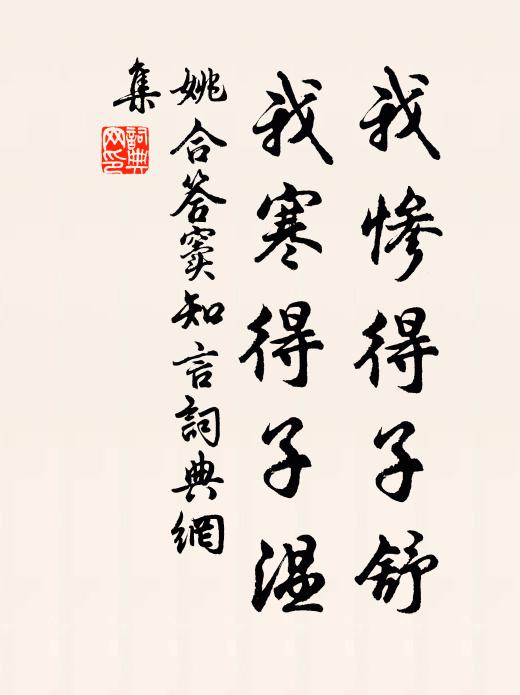 我惨得子舒
我寒得子温
姚合答窦知言詞典網
集
詞典网印